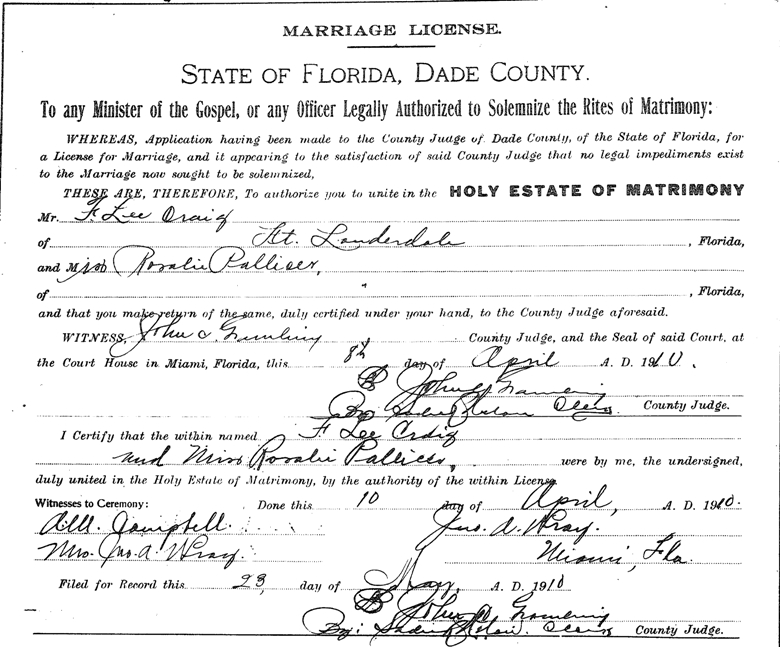 MARRIAGE LICENSE.
STATE OF FLORIDA, DADE COUNTY.
To any Minister of the Gospel, or any Officer Legally Authorized to Solemnize the Rites of Matrimony:
WHEREAS, Application having been made to the County Judge of Dade County, of the State of Florida, for
a License for Marriage, and it appearing to the satisfaction of said County Judge that no legal impediments exist
to the Marriage now sought to be solemnized,
THESE ARE, THEREFORE, To authorize you to unite in the HOLY ESTATE OF MATRIMONY
Mr. F. Lee Craig
of Ft. Lauderdale, Florida,
and Miss Rosalie Palliser,
of , Florida,
and that you make return of the same, duly certified under your hand, to the County Judge aforesaid.
WITNESS, John County Judge, and the Seal of said Court, at
the Court House in Miami, Florida, this 8th day of April A. D. 1910.
John
By: Clerk. County Judge.
I Certify that the within named F Lee Craig
and Miss Rosalie Palliser, were by me, the undersigned,
duly united in the Holy Estate of Matrimony, by the authority of the within License.
Witnesses to Ceremony: Done this 10 day of April, A. D. 1910.
Campbell. Jno. A. Wray.
Mrs. Jno. A. Wray. Miami, Fla.
Filed for Record this 23, day of May, A. D. 1910
John
By: Clerk County Judge.